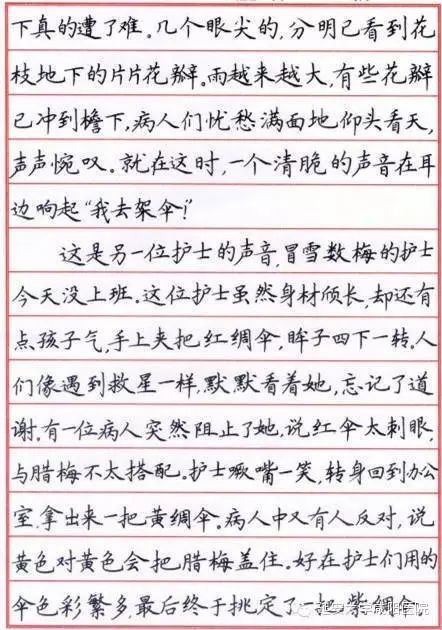 下真的遭了难。几个眼尖的,分明已看到花
枝地下的片片花瓣。雨越来越大,有些花瓣
已冲到檐下,病人们忧愁满面地仰头看天,
声声惋叹。就在这时,一个清脆的声音在耳
边响起“我去架伞!”
这是另一位护士的声音,冒雪数梅的护士
今天没上班。这位护士虽然身材颀长,却还有
点孩子气,手上夹把红绸伞,眸子四下一转。人
们像遇到救星一样,默默看着她,忘记了道
谢。有一位病人突然阻止了她,说红伞太刺眼,
与腊梅不太搭配。护士噘嘴一笑,转身回到办公
室,拿出来一把黄绸伞。病人中又有人反对,说
黄色对黄色会把腊梅盖住。好在护士们用的
伞色彩繁多,最后终于挑定了一把紫绸伞。